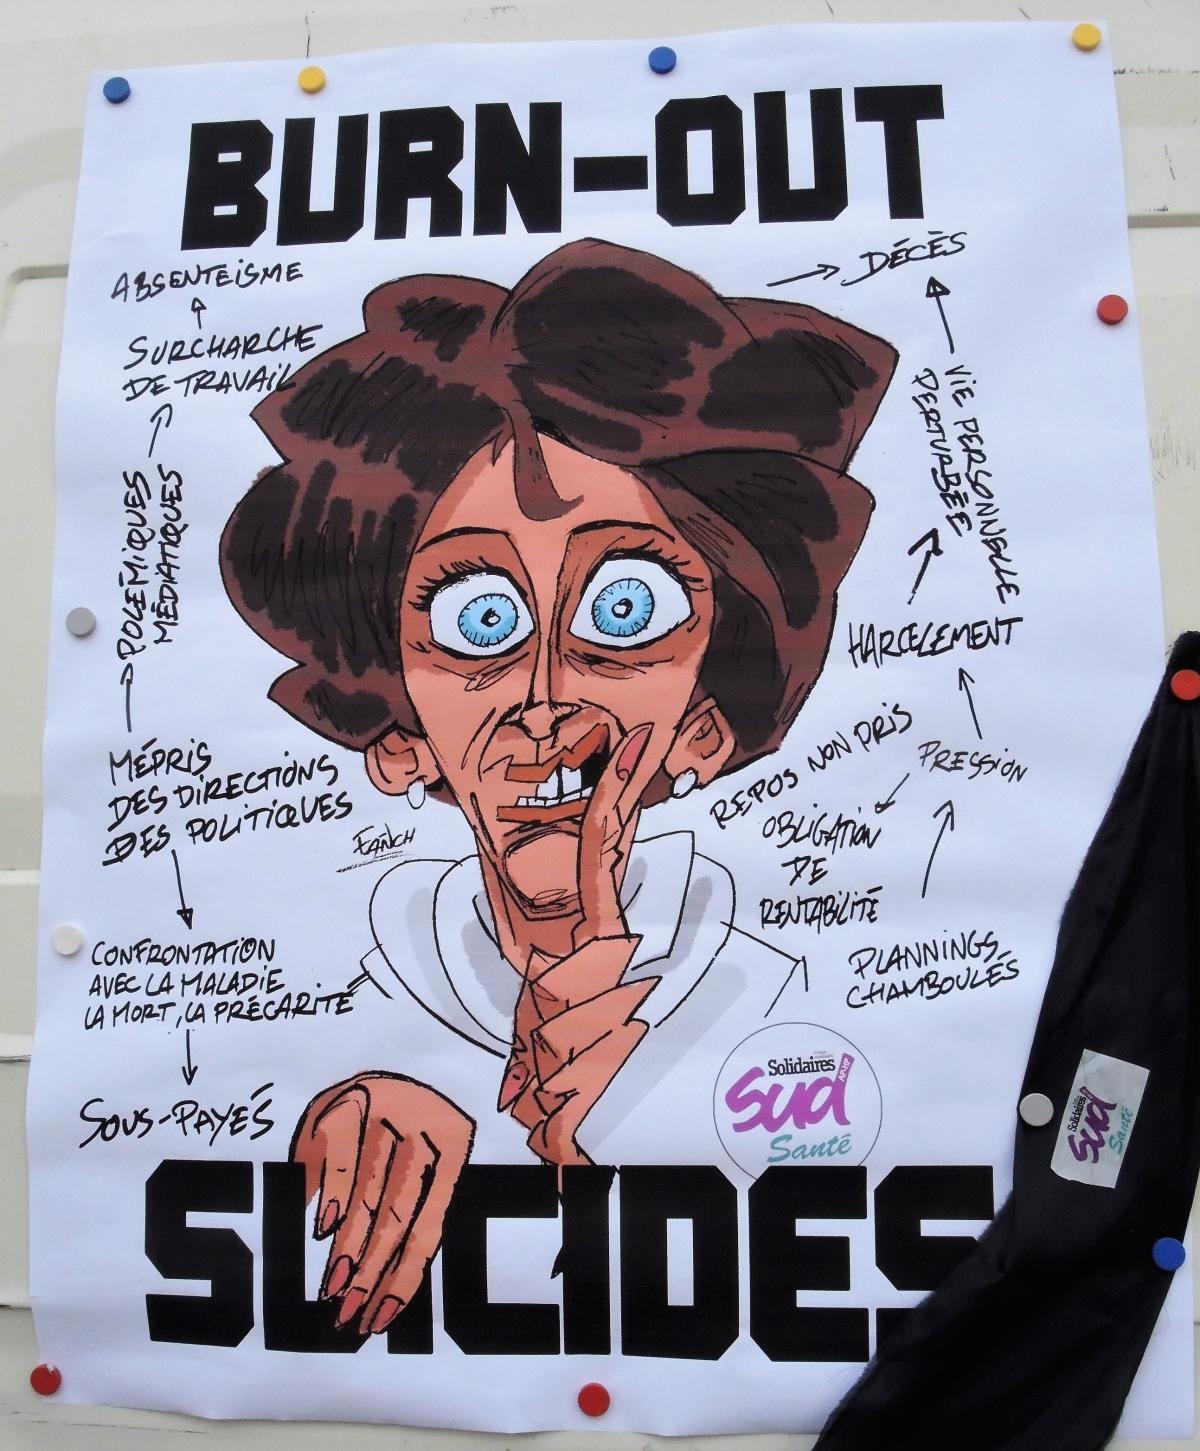 BURN-OUT
ABSENTEISME
SURCHARCHE
DE TRAVAIL
POLÉMIQUES
MÉDIATIQUES
MÉPRIS
DES DIRECTIONS
DES POLITIQUES
FAÑCH
CONFRONTATION
AVEC LA MALADIE
LA MORT, LA PRÉCARITÉ
SOUS-PAYÉS
DÉCÈS
VIE PERSONNELLE
PERTURBÉE
HARCELEMENT
PRESSION
REPOS NON PRIS
OBLIGATION
DE
RENTABILITÉ
PLANNINGS
CHAMBOULÉS
Solidaires
Sud
AP-HP
Santé
SUICIDES
Solidaires
Sud
Santé